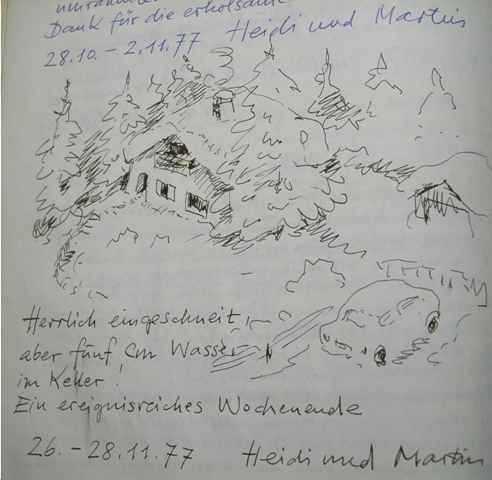 Dank für die erholsame
28.10. – 2.11.77 Heidi und Martin
Herrlich eingeschneit,
aber fünf cm Wasser
im Keller!
Ein ereignisreiches Wochenende
26. – 28.11.77 Heidi und Martin